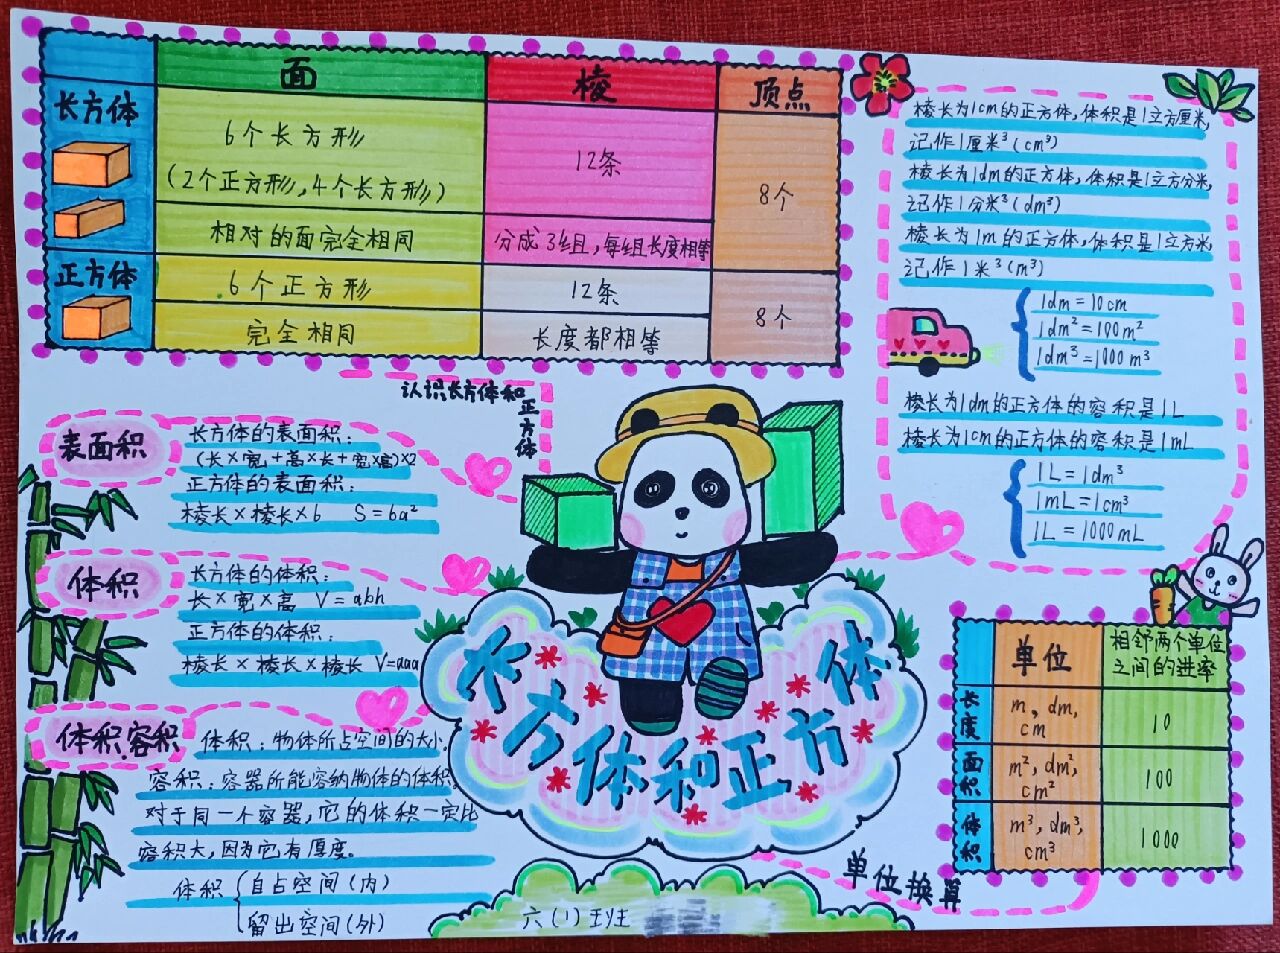 面 棱 顶点
长方体
6个长方形
(2个正方形,4个长方形)
12条
8个
相对的面完全相同
分成3组,每组长度相等
正方体
6个正方形
12条
8个
完全相同
长度都相等
棱长为1cm的正方体,体积是1立方厘米,
记作1厘米³(cm³)
棱长为1dm的正方体,体积是1立方分米,
记作1分米³(dm³)
棱长为1m的正方体,体积是1立方米,
记作1米³(m³)
1dm=10cm
1dm²=100m²
1dm³=1000m³
棱长为1dm的正方体的容积是1L
棱长为1cm的正方体的容积是1mL
1L=1dm³
1mL=1cm³
1L=1000mL
认识长方体和
正方体
表面积
长方体的表面积:
(长×宽+高×长+宽×高)×2
正方体的表面积:
棱长×棱长×6 S=6a²
体积
长方体的体积:
长×宽×高 V=abh
正方体的体积:
棱长×棱长×棱长 V=aaa
体积容积
体积:物体所占空间的大小.
容积:容器所能容纳物体的体积.
对于同一个容器,它的体积一定比
容积大,因为它有厚度。
体积
自占空间(内)
留出空间(外)
长方体和正方体
六(1)班
单位换算
单位
相邻两个单位
之间的进率
长度
m,dm,
cm
10
面积
m²,dm²,
cm²
100
体积
m³,dm³,
cm³
1000